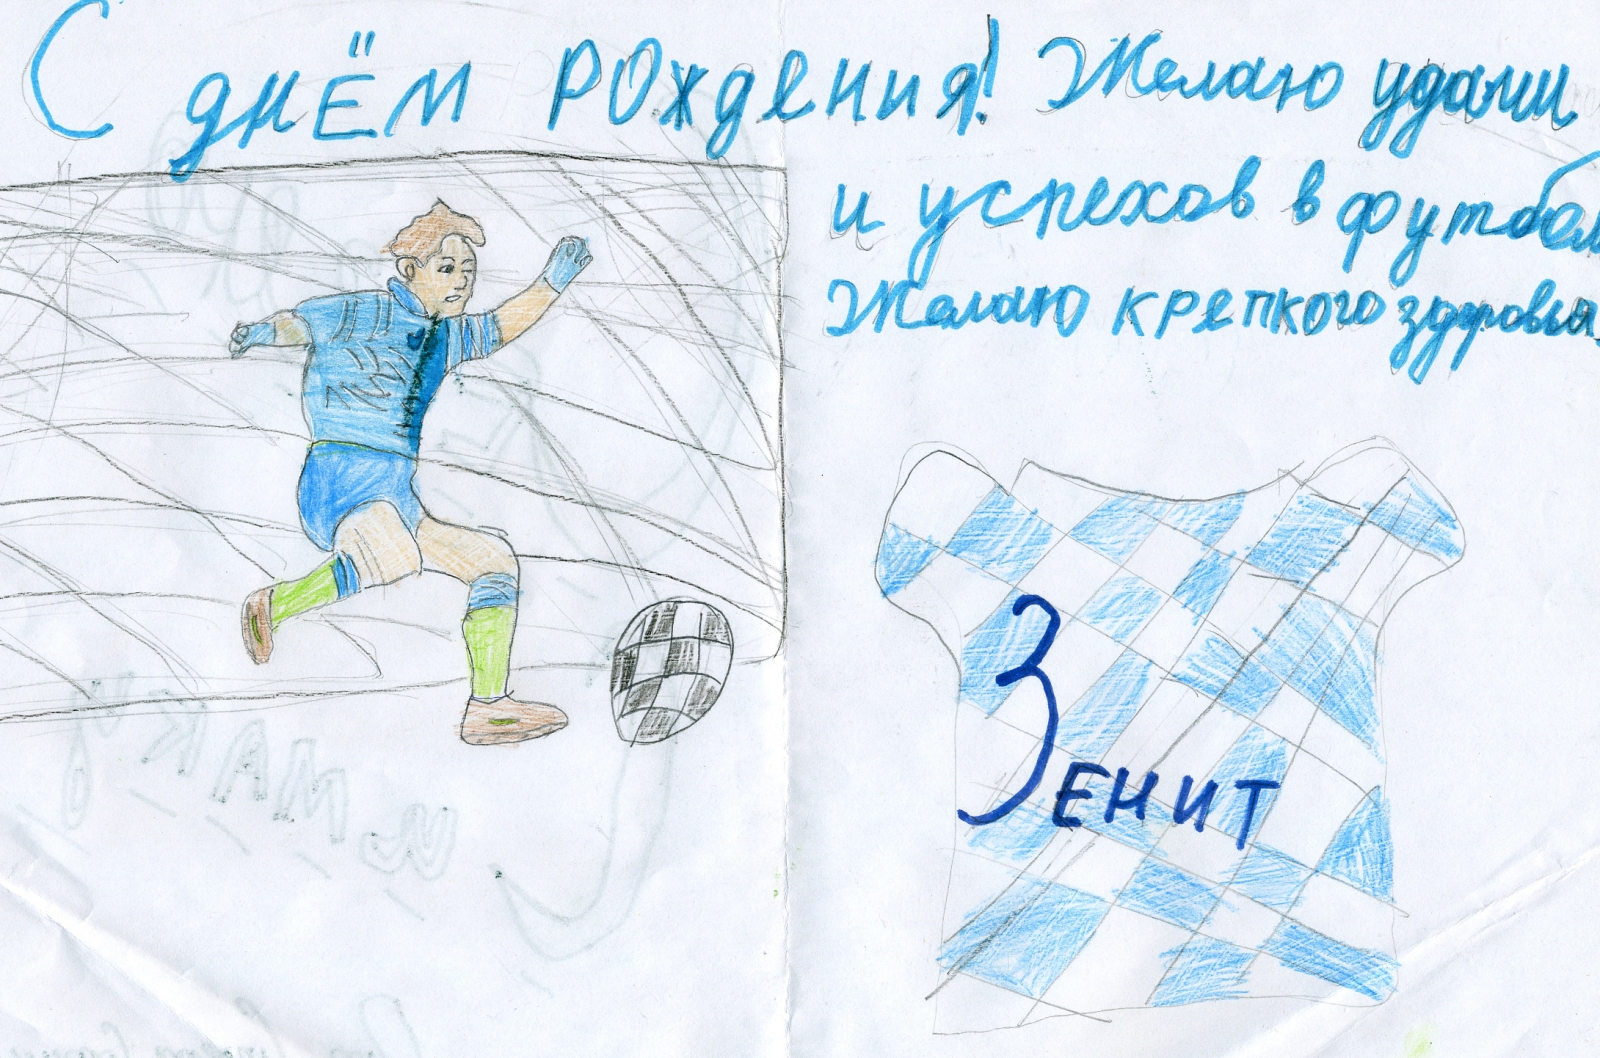 С днЁм рождения!
Желаю удачи
и успехов в футбол
Желаю крепкого здоровья,
Зенит